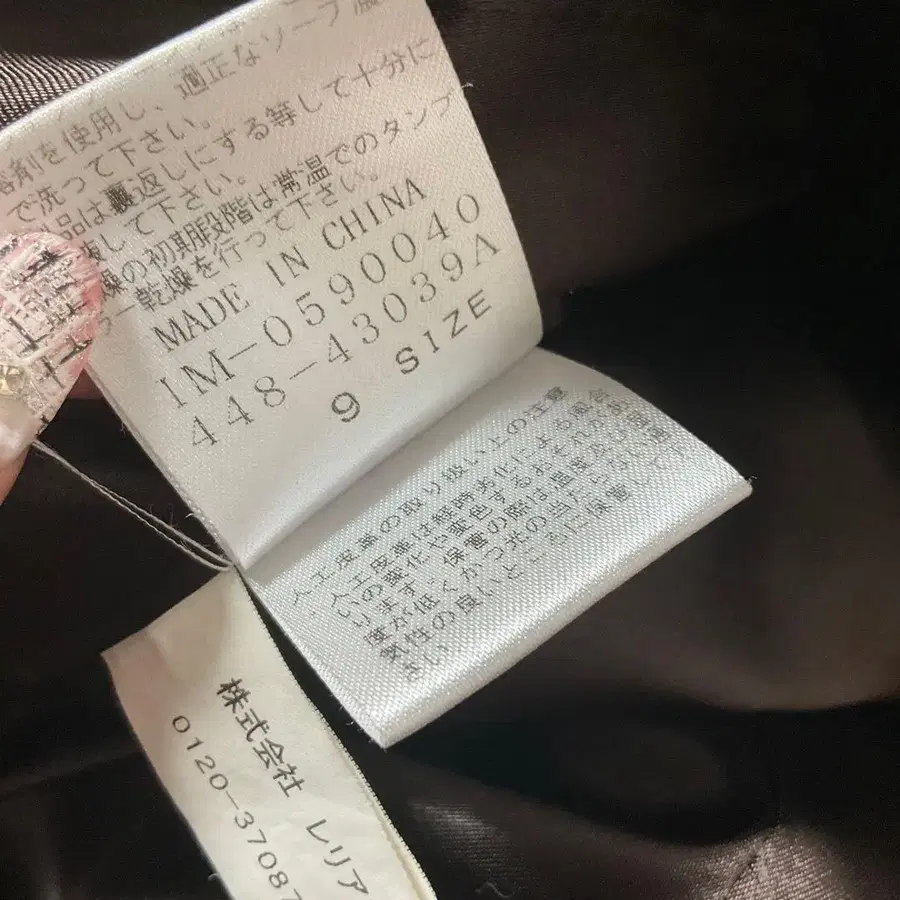 溶剤を使用し、適正なソープ温
で洗って下さい。
品は裏返しにする等して十分に
して下さい。
燥の初期段階は常温でのタンブ
ラー乾燥を行って下さい。
MADE IN CHINA
1M-0590040
448-43039A
9 SIZE
人工皮革の取り扱い上の注意
・人工皮革は経時劣化による風合
いの変化や変色するおそれがあ
ります。保管の際は温度及び湿
度が低くかつ光の当たらない通
気性の良いところに保管して下
さい
株式会社 レリア
0120-37087